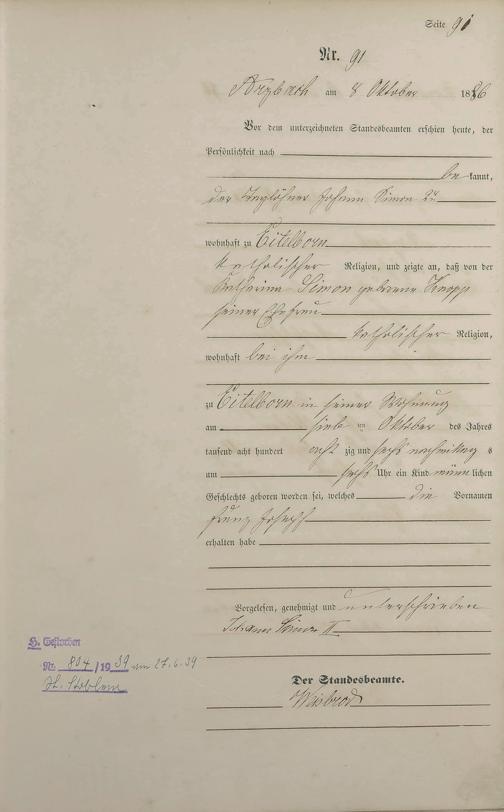 Seite 91
Nr. 91
Arzbach am 8 Oktober 1886
Vor dem unterzeichneten Standesbeamten erschien heute, der
Persönlichkeit nach
be kannt,
der Tagelöhner Johann Simon 2r
wohnhaft zu Eitelborn
katholischer Religion, und zeigte an, daß von der
Katharina Simon geborene Knopp
seiner Ehefrau
katholischer Religion,
wohnhaft bei ihm
zu Eitelborn in seiner Wohnung
am sieb ten Oktober des Jahres
tausend acht hundert acht zig und sechs nachmittag s
um sechs Uhr ein Kind männ lichen
Geschlechts geboren worden sei, welches die Vornamen
Franz Joseph
erhalten habe
Vorgelesen, genehmigt und unterschrieben
Johann Simon II
Der Standesbeamte.
Weisbrod
H. Gestorben
Nr. 804/1939 am 27.6.39
St. Koblenz